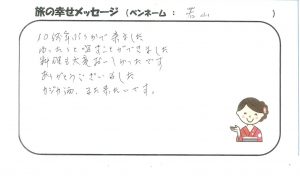 旅の幸せメッセージ(ペンネーム: 若山)
10数年ぶりかで来ました
ゆったりと過すことができました
料理も大変おいしかったです
ありがとうございました
また来たいです。